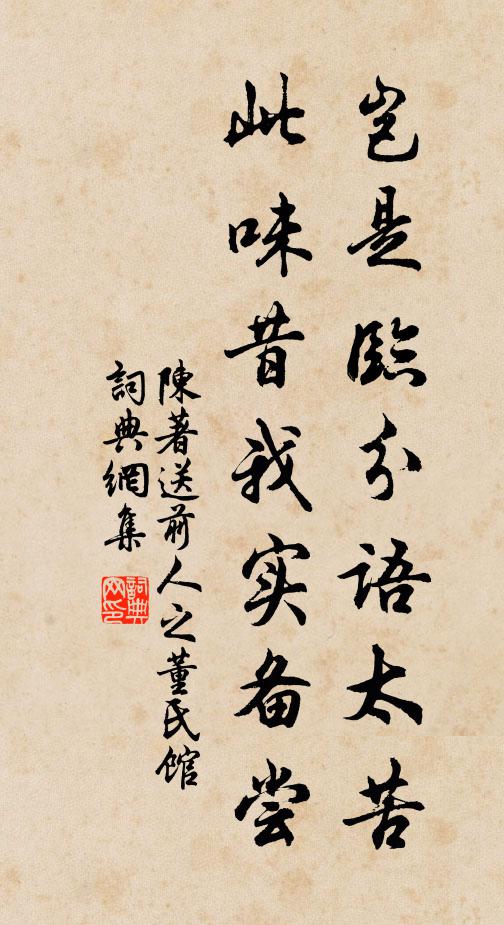 岂是臨分語太苦
此味昔我实备尝
陳著送前人之董氏館
詞典網集
詞典网印